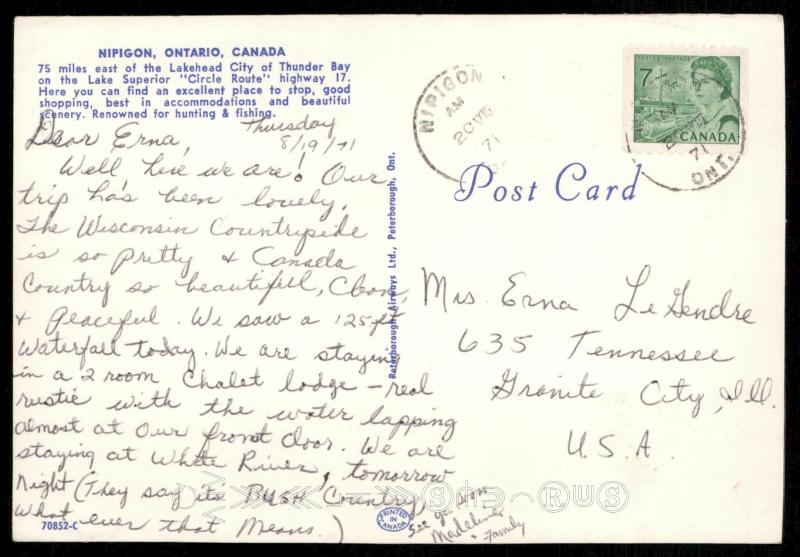 NIPIGON, ONTARIO, CANADA
75 miles east of the Lakehead City of Thunder Bay
on the Lake Superior "Circle Route" highway 17.
Here you can find an excellent place to stop, good
shopping, best in accommodations and beautiful
scenery. Renowned for hunting & fishing.
Thursday
8/19/71
Dear Erna,
Well here we are! Our
trip has been lovely.
The Wisconsin Countryside
is so pretty & Canada
Country so beautiful, Clean,
& Peaceful. We saw a 125 ft
Waterfall today. We are staying
in a 2 room Chalet lodge - real
rustic with the water lapping
almost at our front door. We are
staying at White River, tomorrow
night (They say its BUSH Country,
What ever that means.)
See ya
Madeline
& Family
70852-C
PRINTED IN CANADA
Peterborough Airways Ltd., Peterborough, Ont.
NIPIGON
AM
20
71
Post Card
7
POSTES POSTAGE
CANADA
AM
71
ONT.
Mrs. Erna LeGendre
635 Tennessee
Granite City, Ill.
U.S.A.
R US